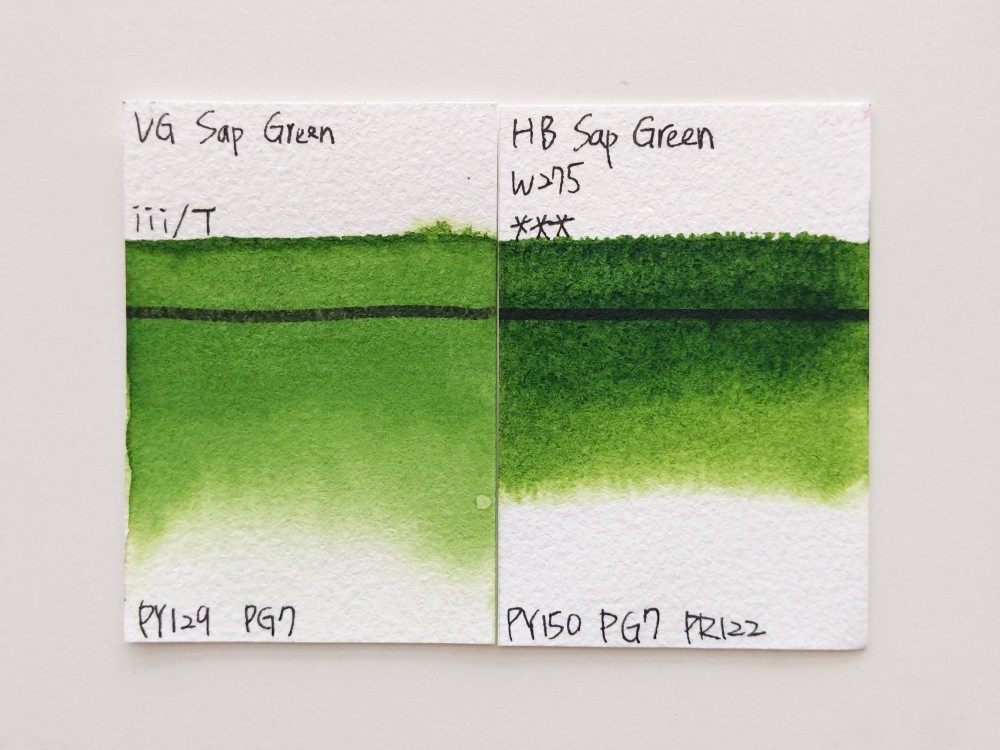 VG Sap Green
iii/T
PY129 PG7
HB Sap Green
W275
***
PY150 PG7 PR122